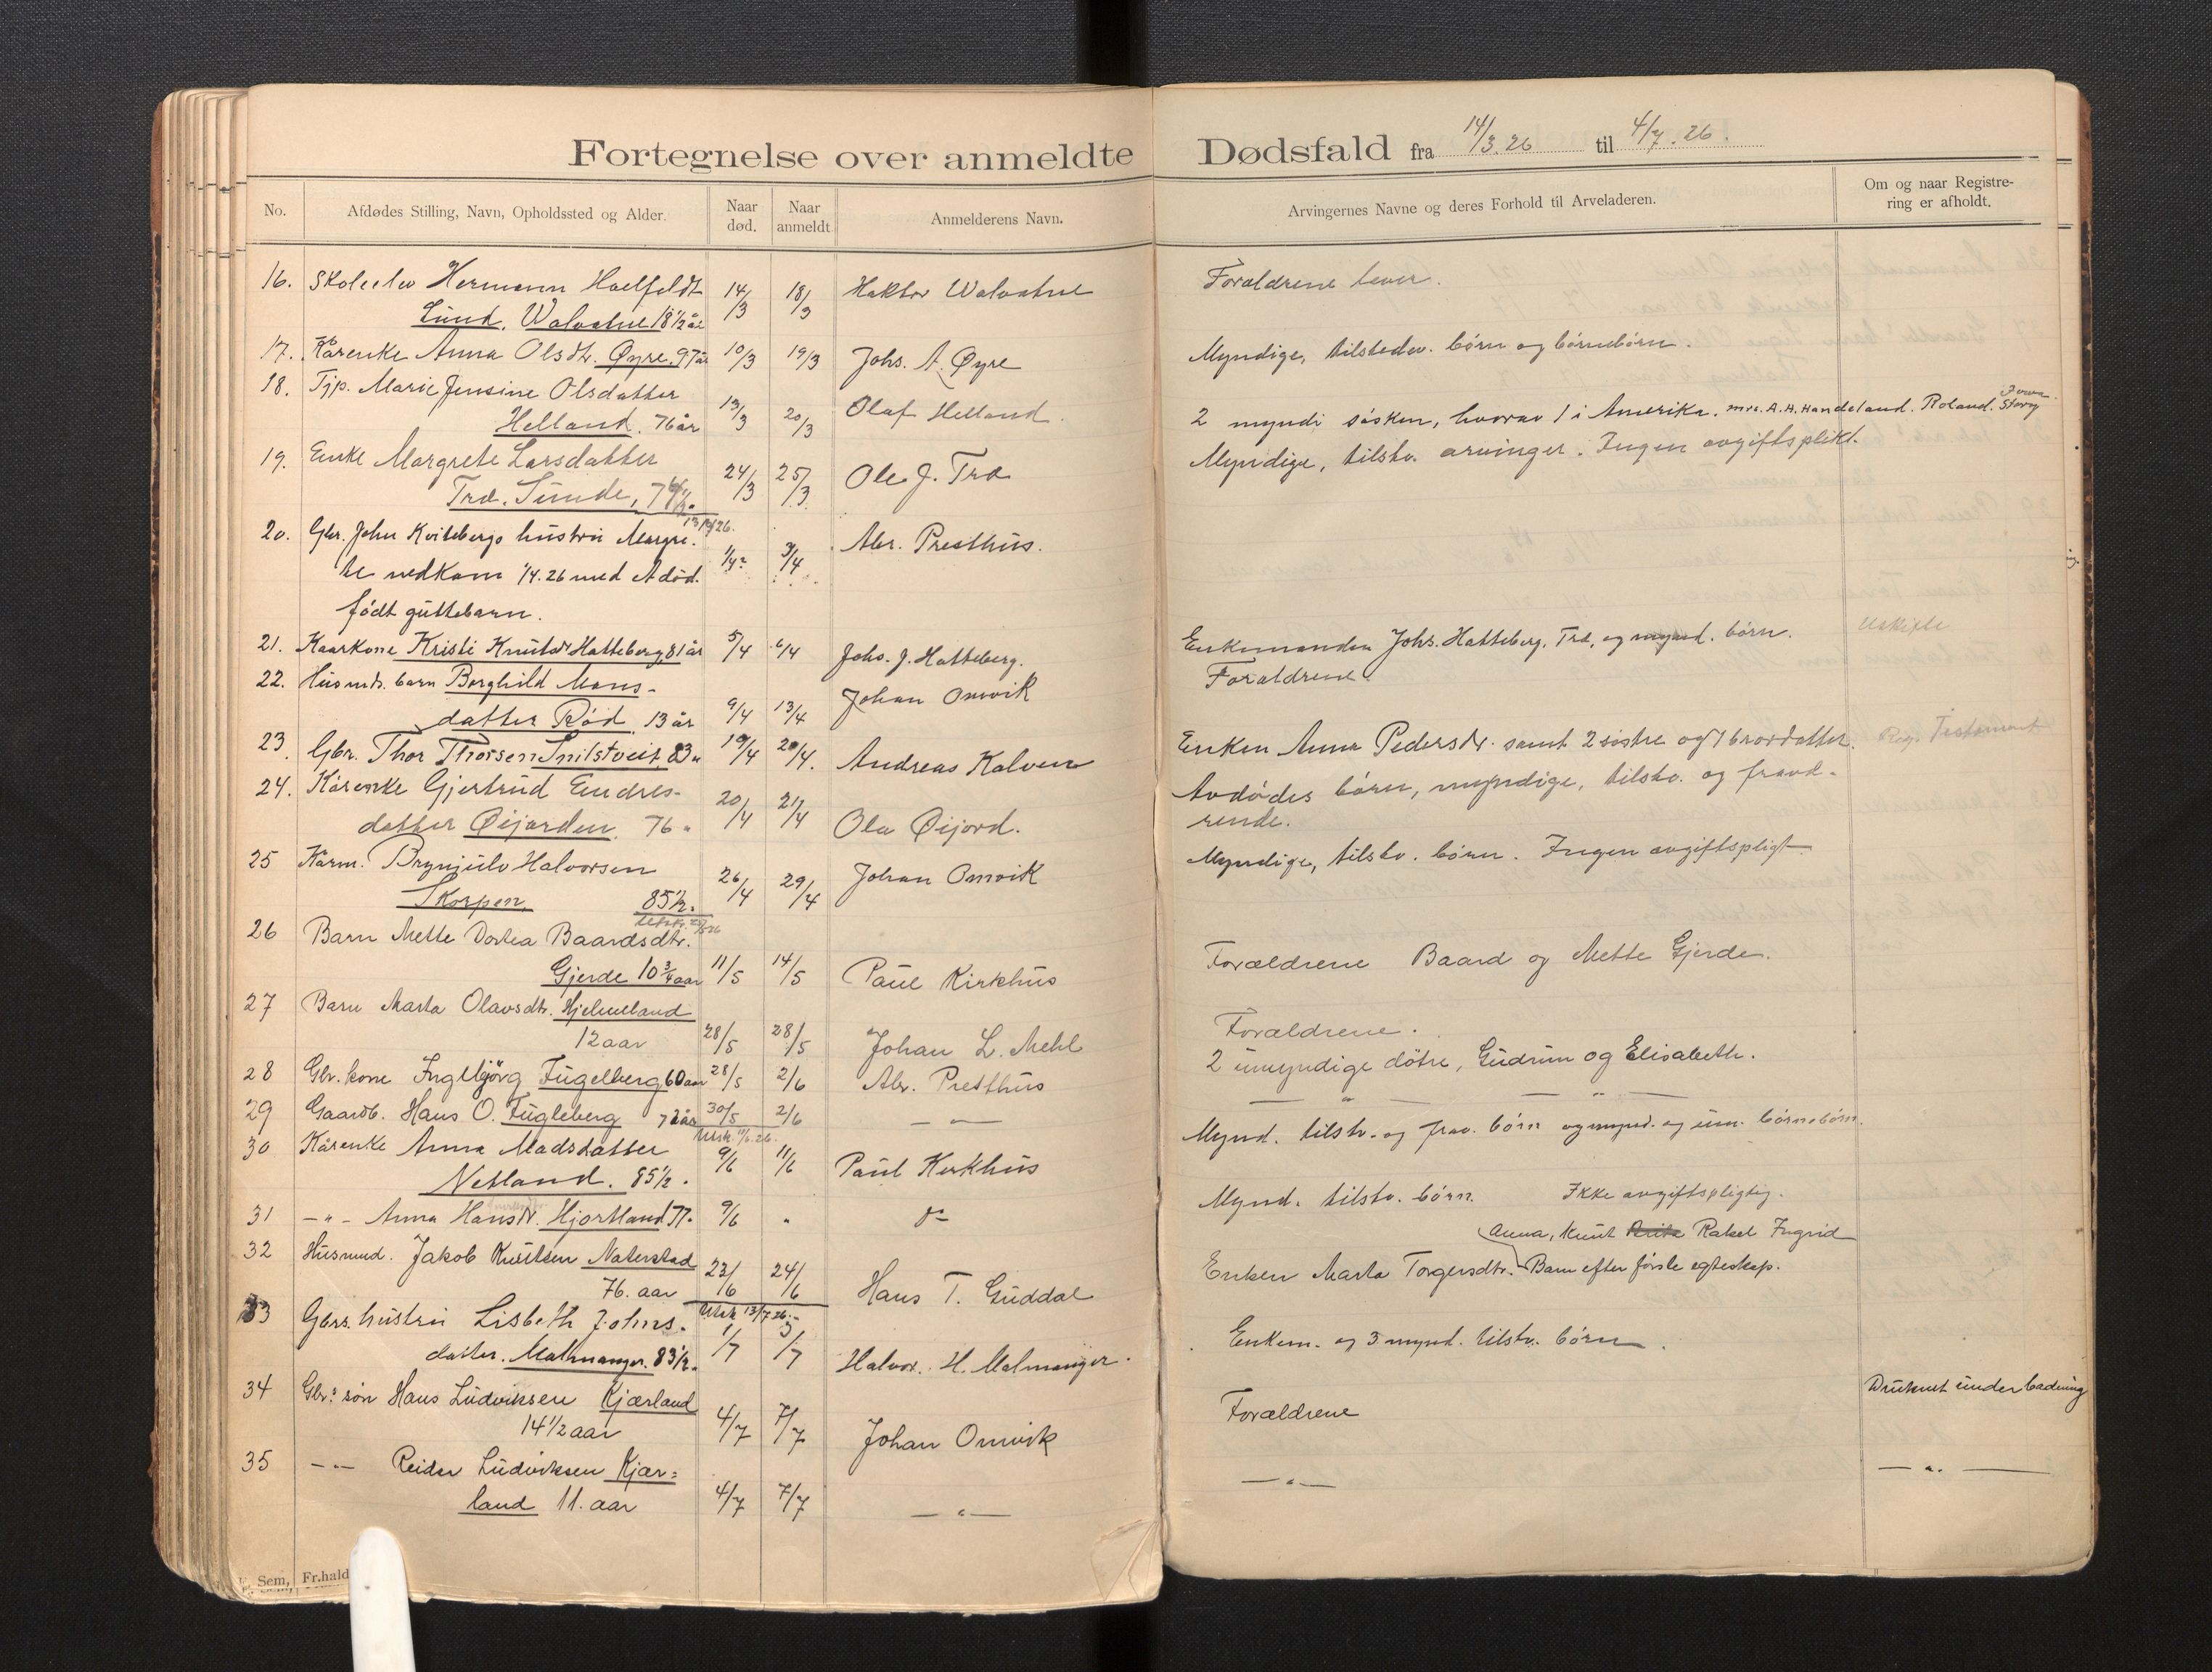 Fortegnelse over anmeldte Dødsfald fra 14/3.26 til 4/7.26.
No. Afdødes Stilling, Navn, Opholdssted og Alder. Naar død. Naar anmeldt Anmelderens Navn. Arvingernes Navne og deres Forhold til Arveladeren. Om og naar Registrering er afholdt.
16. Skoleelev Hermann Hoelfeldt 14/3 18/3 Hektor Walvatne Forældrene lever.
Lund. Walvatne 18 1/2 år
17. Kårenke Anna Olsdtr. Øyre. 97 år 10/3 19/3 Johs. A. Øyre Myndige, tilstedev. børn og børnebørn.
18. Tjp. Marie Jensine Olsdatter
Helland. 76 år 13/3 20/3 Olaf Helland. 2 myndi søsken, hvorav 1 i Amerika. mrs. A. H. Handeland. Roland. Story Iowa
19. Enke Margrete Larsdatter
Træ. Sunde, 24/3 25/3 Ole J. Træ Myndige, tilstv. arvinger. Ingen avgiftsplikt.
20. Gbr. John Kvitebergs hustru Margre- Abr. Presthus.
te nedkom 1/4.26 med et død-
født guttebarn.
21. Kaarkone Kristi Knutsdtr Hatteberg, 81 år 5/4 6/4 Johs. J. Hatteberg. Enkemanden Johs. Hatteberg, Træ, og mynd. børn. Uskifte
22. Husmds. barn Borghild Mons-
datter Rød. 13 år 9/4 13/4 Johan Omvik Forældrene
23. Gbr. Thor Thorsen Snilstveit, 83 " 19/4 20/4. Andreas Kalven Enken Anna Pedersdtr. samt 2 søstre og 1 brordatter. Reg. Testament
24. Kårenke Gjertrud Endres-
datter Øijorden. 76 " 20/4 21/4 Ola Øijord. Avdødes børn, myndige, tilstv. og fravæ-
rende.
25 Kårm. Brynjulv Halvorsen
Skorpen 85 1/2. 26/4 29/4 Johan Omvik Myndige, tilstv. børn. Ingen avgiftspligt
26 Barn Mette Dortea Baardsdtr.
Gjerde 10 3/4 aar 11/5 14/5 Paul Kirkhus Forældrene Baard og Mette Gjerde.
27 Barn Marta Olavsdtr. Hjelmeland
12 aar 28/5 28/5 Johan L. Mehl Forældrene.
28 Gbr. kone Ingebjörg Fugelberg 60 aar 28/5 2/6 Abr. Presthus 2 umyndige døtre, Gudrun og Elisabeth.
29 Gaardb. Hans O. Fugleberg 72 år 30/5 2/6 — " — — " — — " —
Utsk. 11/6.26.
30 Kårenke Anna Madsdatter
Netland. 85 1/2. 9/6 11/6 Paul Kirkhus Mynd. tilstv. og frav. børn og mynd. og um. børnebørn.
31 — " — Anna Hansdtr. Hjortland 77. 9/6 " do Mynd. tilstv. børn. Ikke avgiftspligtig.
32 Husmnd. Jakob Knutsen Naterstad
76. aar 23/6 24/6 Hans T. Guddal Enken Marta Torgersdtr. Barn efter første egteskap.
Anna, Knut Rakel Ingrid
Utsk 13/7 26.
33 Gbrs. hustru Lisbeth Johns-
datter. Malmanger. 83 1/2. 1/7 3/7 Halvor. H. Malmanger. Enkem. og 3 mynd. tilstv. børn.
34 Gbr.s søn Hans Ludviksen Kjærland
14 1/2 aar 4/7 7/7 Johan Omvik Forældrene Druknet under badning
35 — " — Reidar Ludviksen Kjær-
land 11. aar 4/7 7/7 — " — — " — — " —
E. Sem, Fr.hald